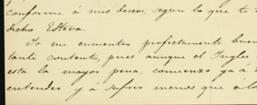 conforme á mis deseos, segun lo que te
dicho Esteva.
Yo me encuentro perfectamente buen
tante contento, pues aunque el Ingles
esta la mayor pena, comienzo ya á
entender y á sufrir menos que a lo